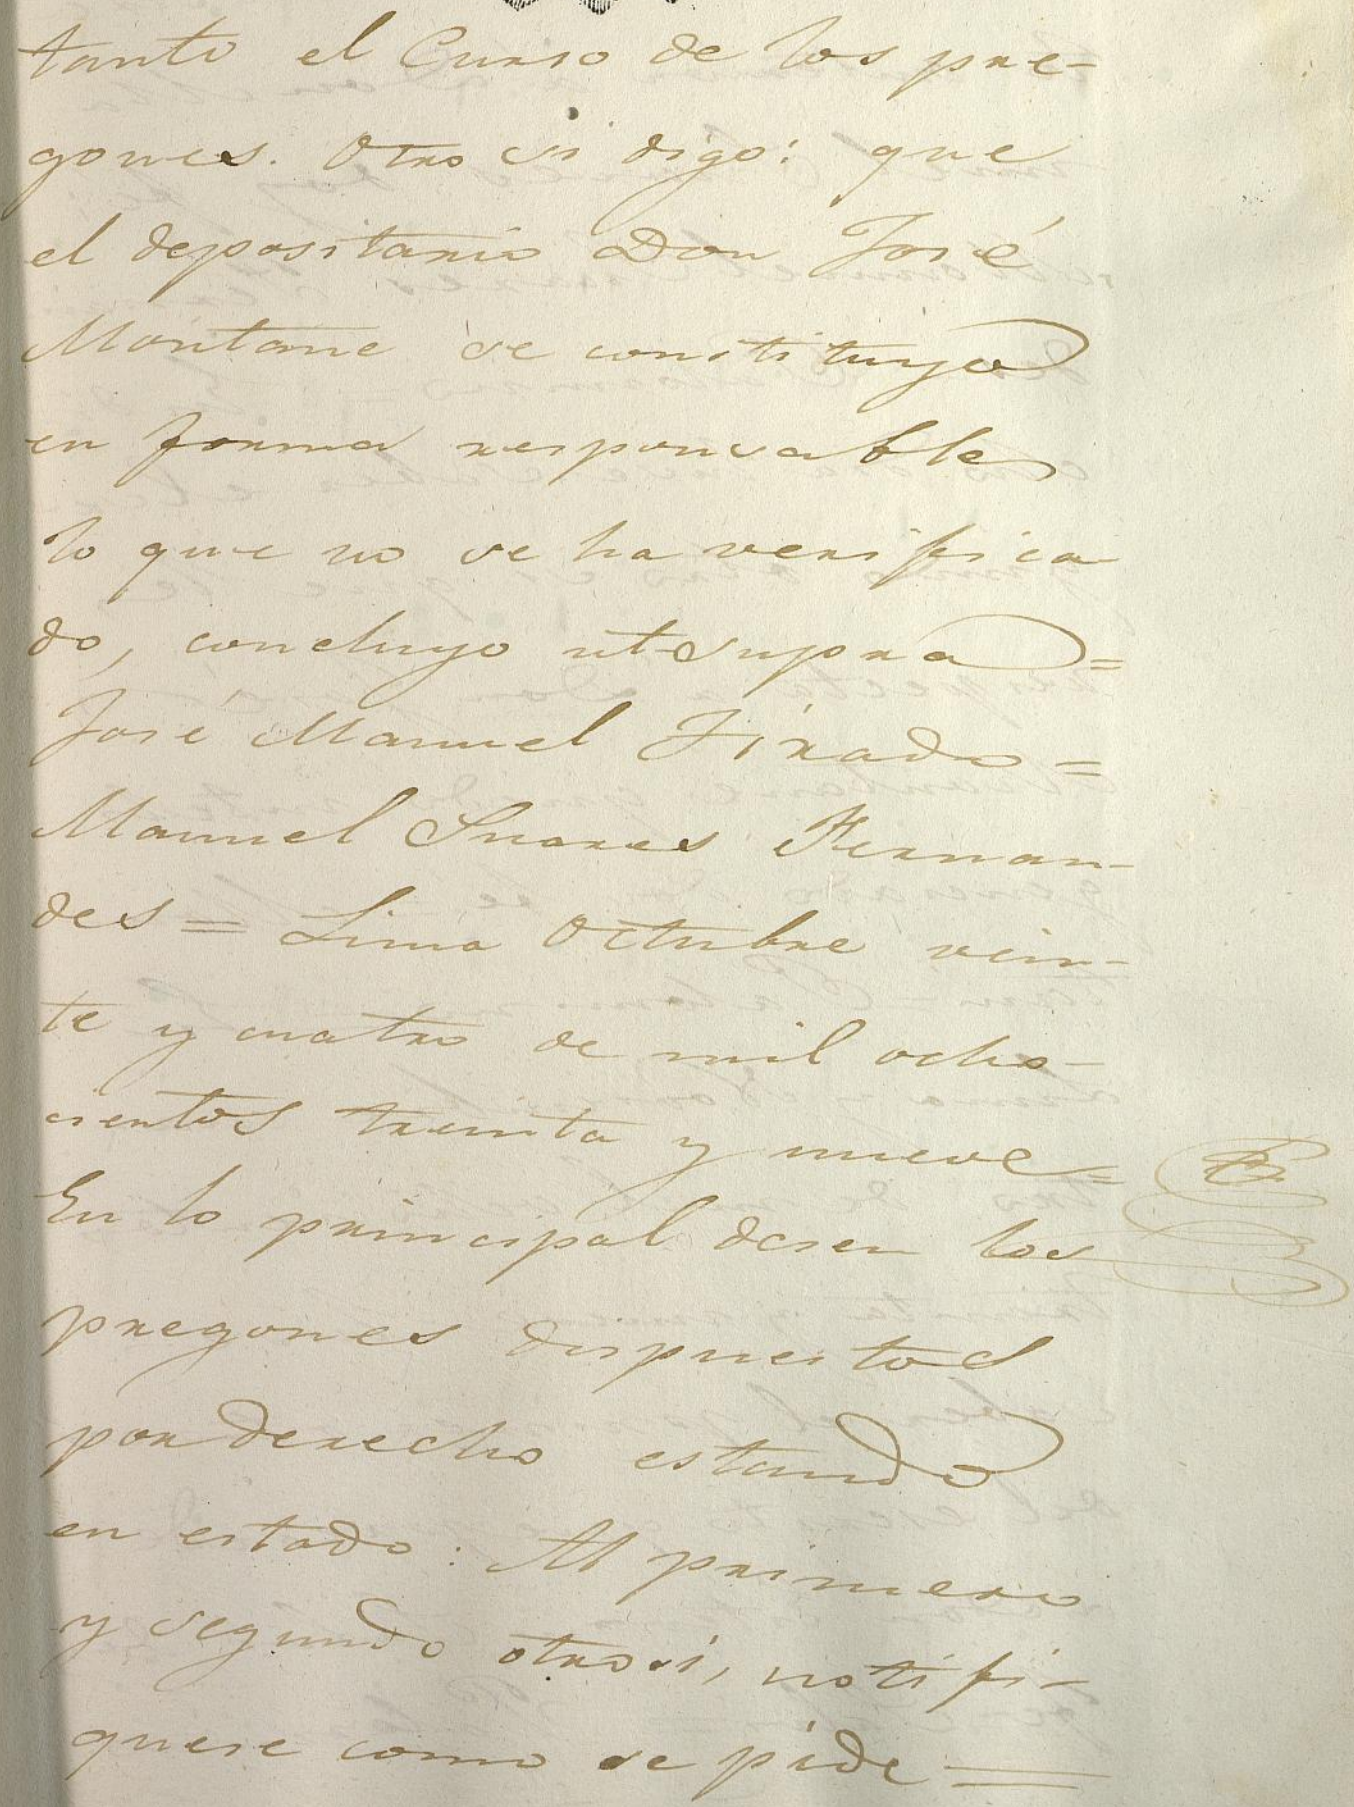 tanto el Curso de los pre-
gones. Otro si digo: que
el depositario Don José
Montané se constituyo
en forma responsable
lo que no se ha verifica
do, concluyo ut supra =
José Manuel Tirado =
Manuel Suares Fernan-
des = Lima Octubre vein-
te y cuatro de mil ocho-
cientos treinta y nueve =
En lo principal desen los
pregones dispuestos
por derecho estando
en estado: Al primero
y segundo otrosi, notifi-
quese como se pide =